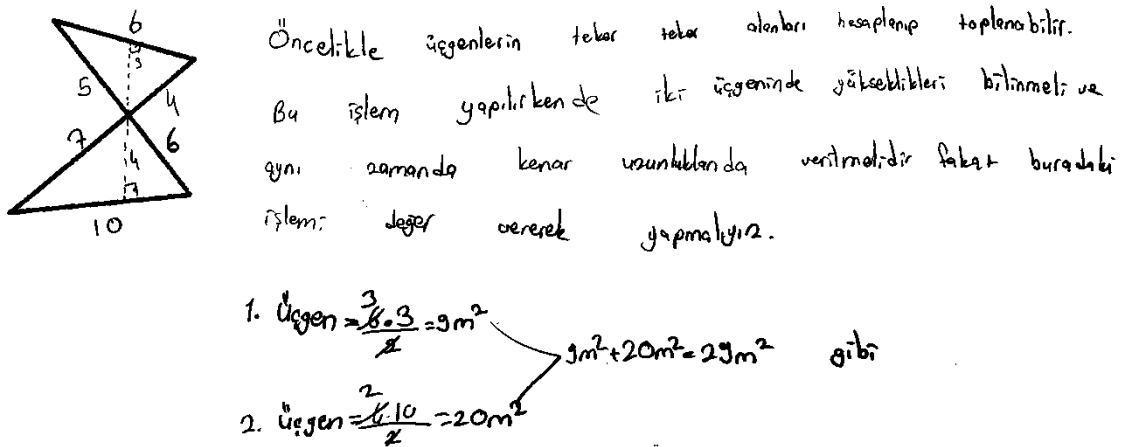 6
3
5
4
7
6
4
10
Öncelikle üçgenlerin teker teker alanları hesaplanıp toplanabilir.
Bu işlem yapılırken de iki üçgeninde yükseklikleri bilinmeli ve
aynı zamanda kenar uzunluklarıda verilmelidir fakat buradaki
işlemi değer vererek yapmalıyız.
1. Üçgen = 6.3/2 = 9m² 3
9m²+20m²=29m² gibi
2. üçgen = 4.10/2 = 20m² 2